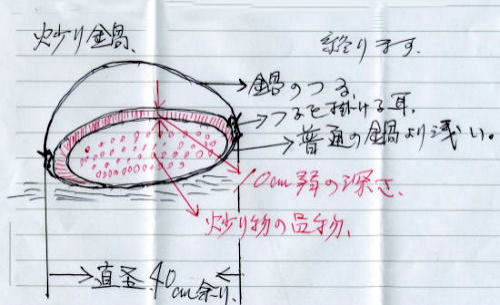 炒り鍋、
終ります。
鍋のつる、
つるを掛ける耳、
普通の鍋より浅い。
10cm弱の深さ、
炒り物の品物、
直径40cm余り、